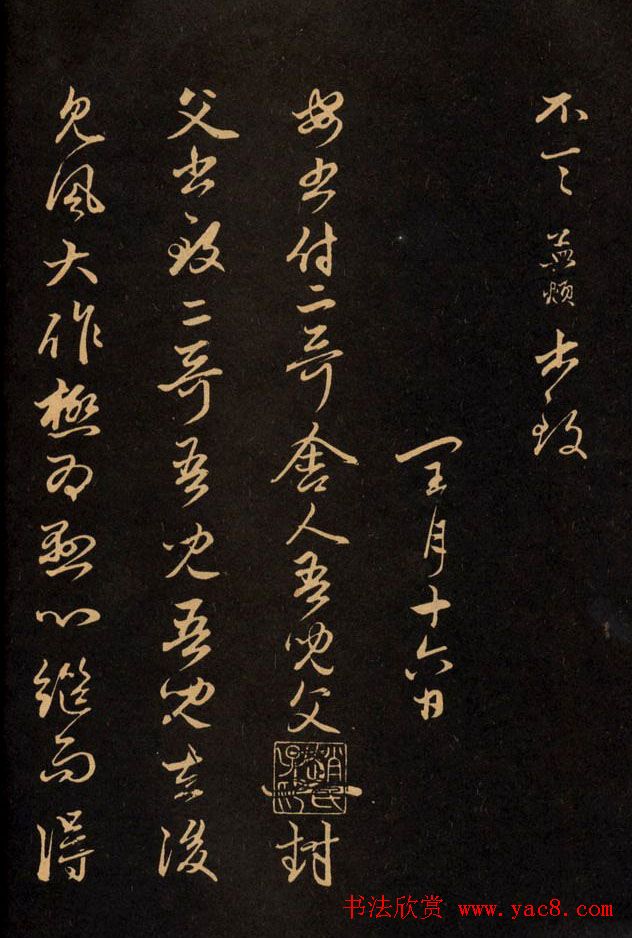 不一一 孟頫 書致
月十六日
書付二哥舍人吾兒父 封
趙氏子昂
父書致二哥吾兒吾兒去後
見風大作極為懸心繼而得
书法欣赏 www.yac8.com